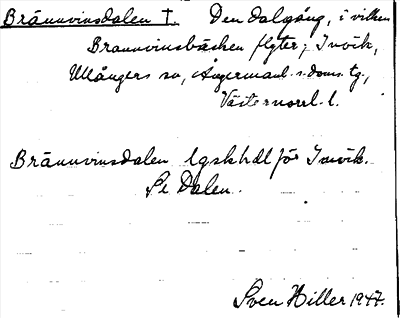 Brännvinsdalen †. Den dalgång, i vilken
Brannvinsbäcken flyter, Invik,
Ullångers sn, Ångermanl. s. doms. tg.,
Västernorrl. l.
Brännvinsdalen lgskhdl för Invik.
Se Dalen.
Sven Hiller 1947.